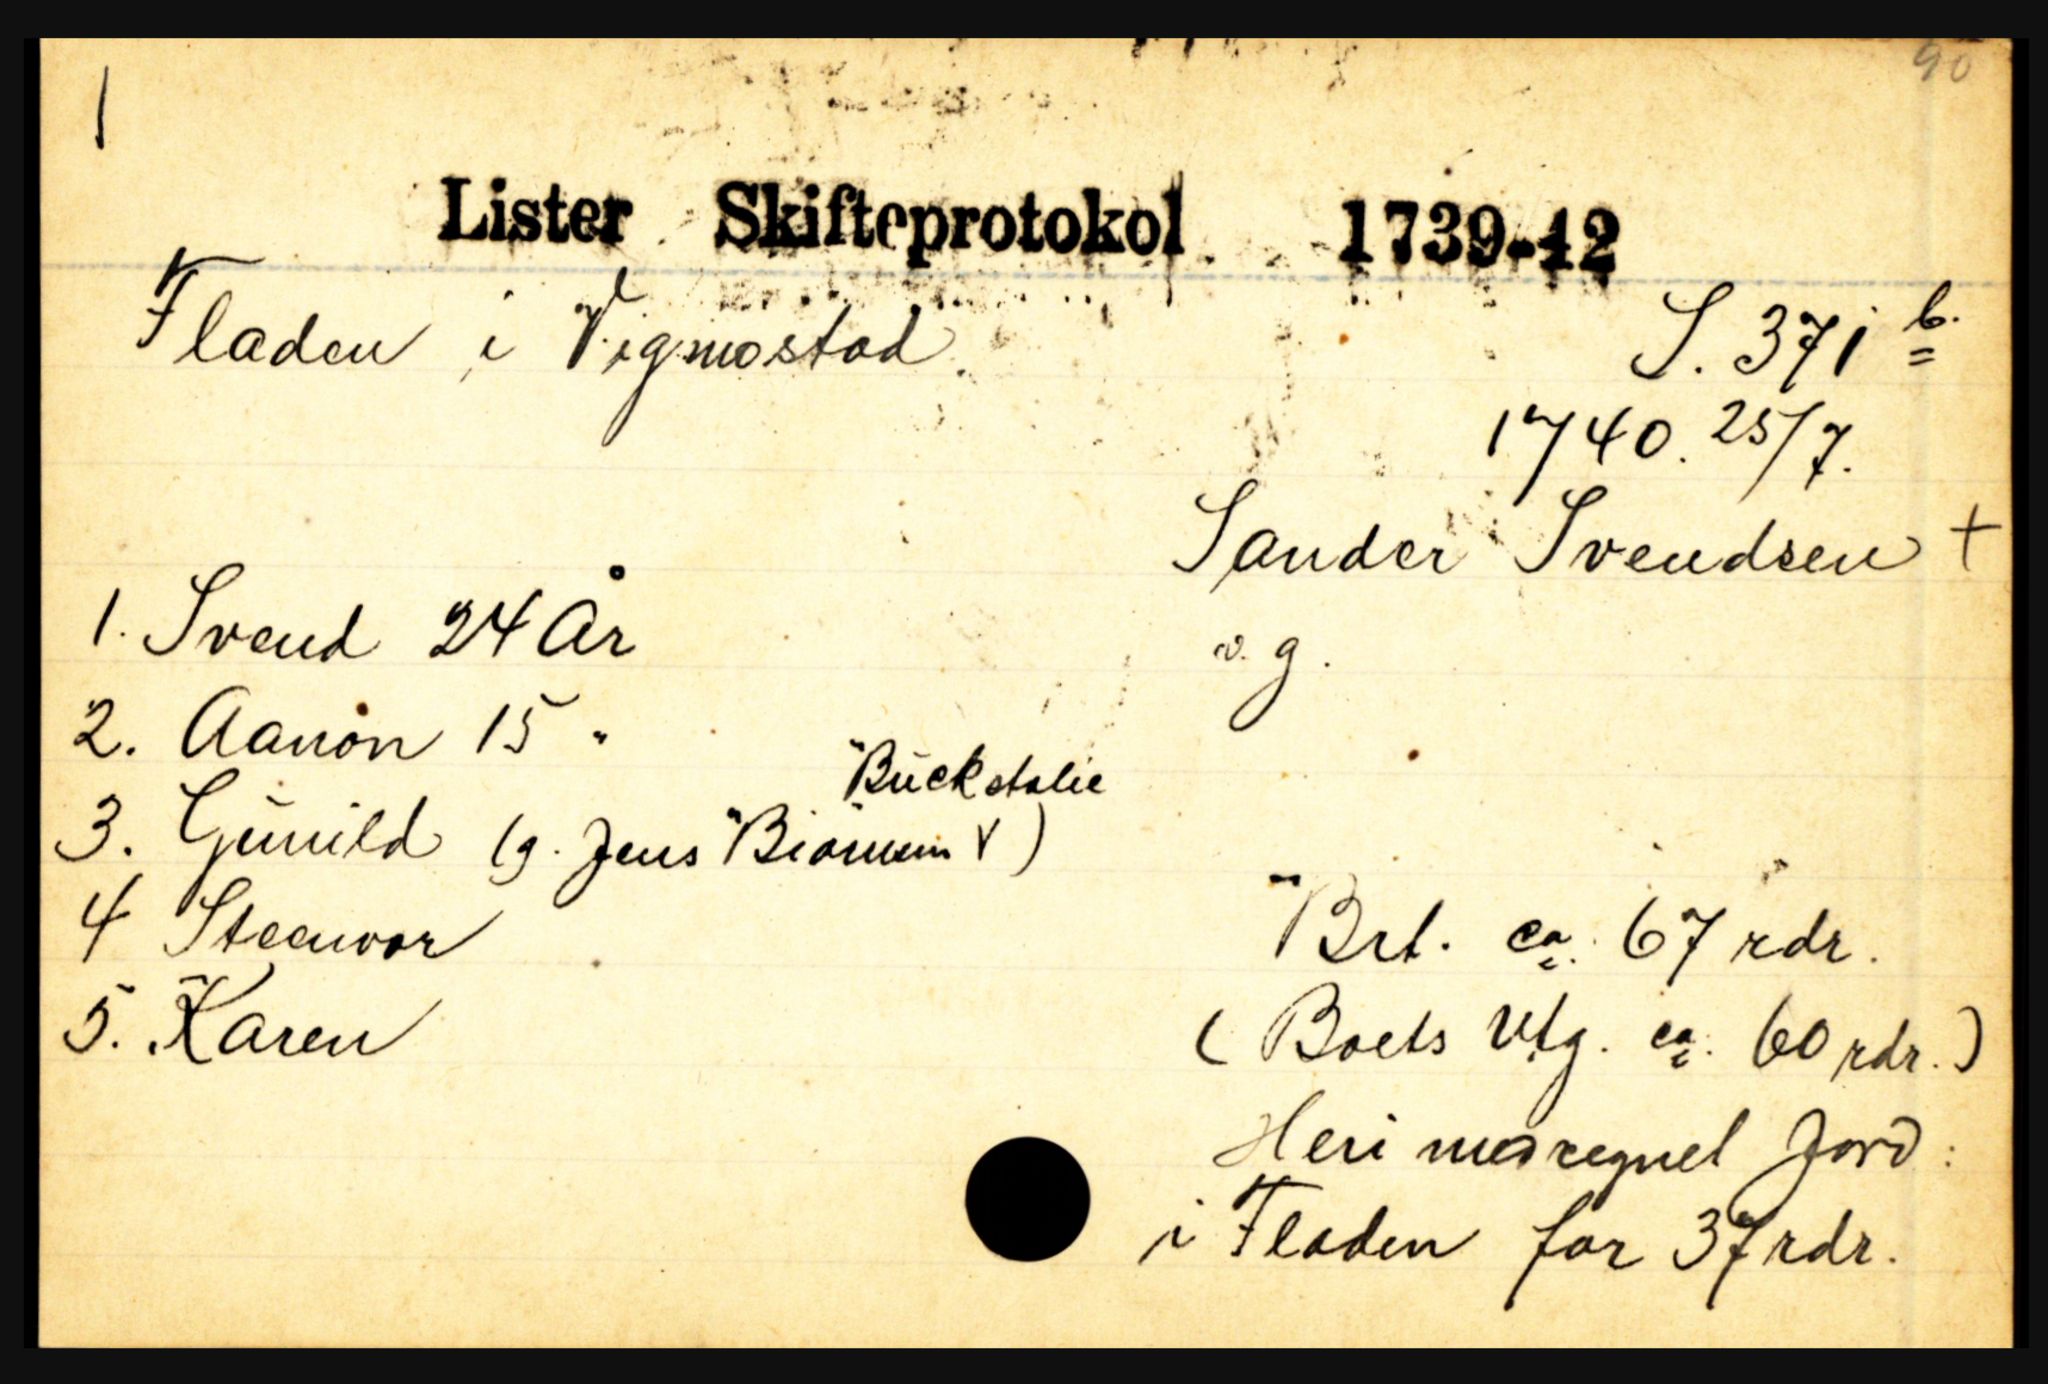 90
1
Lister Skifteprotokol 1739-42
Fladen i Vigmostad.
S. 371 b.
1740. 25/7.
Sander Svendsen +
1. Svend 24 År
v. g.
2. Aanon 15 "
Buckstalie
3. Gunild (g. Jens v)
4 Steenvor
Brt. ca. 67 rdr.
5. Karen
(Boets Utg. ca. 60 rdr.)
Heri medregnet Jord:
i Fladen for 37 rdr.